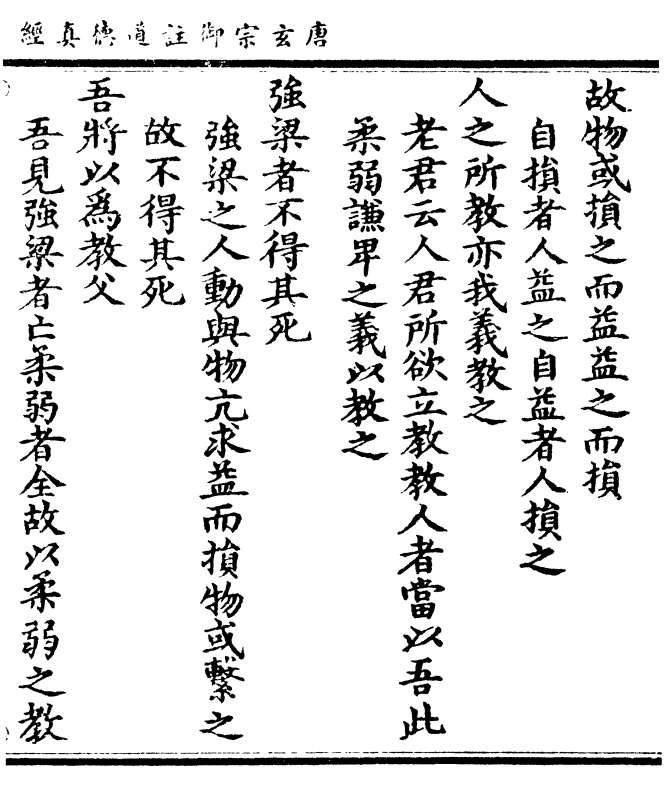 唐玄宗御註道德真經
故物或損之而益益之而損
自損者人益之自益者人損之
人之所教亦我義教之
老君云人君所欲立教教人者當以吾此
柔弱謙卑之義以教之
強梁者不得其死
強梁之人動與物亢求益而損物或繫之
故不得其死
吾將以為教父
吾見強梁者亡柔弱者全故以柔弱之教